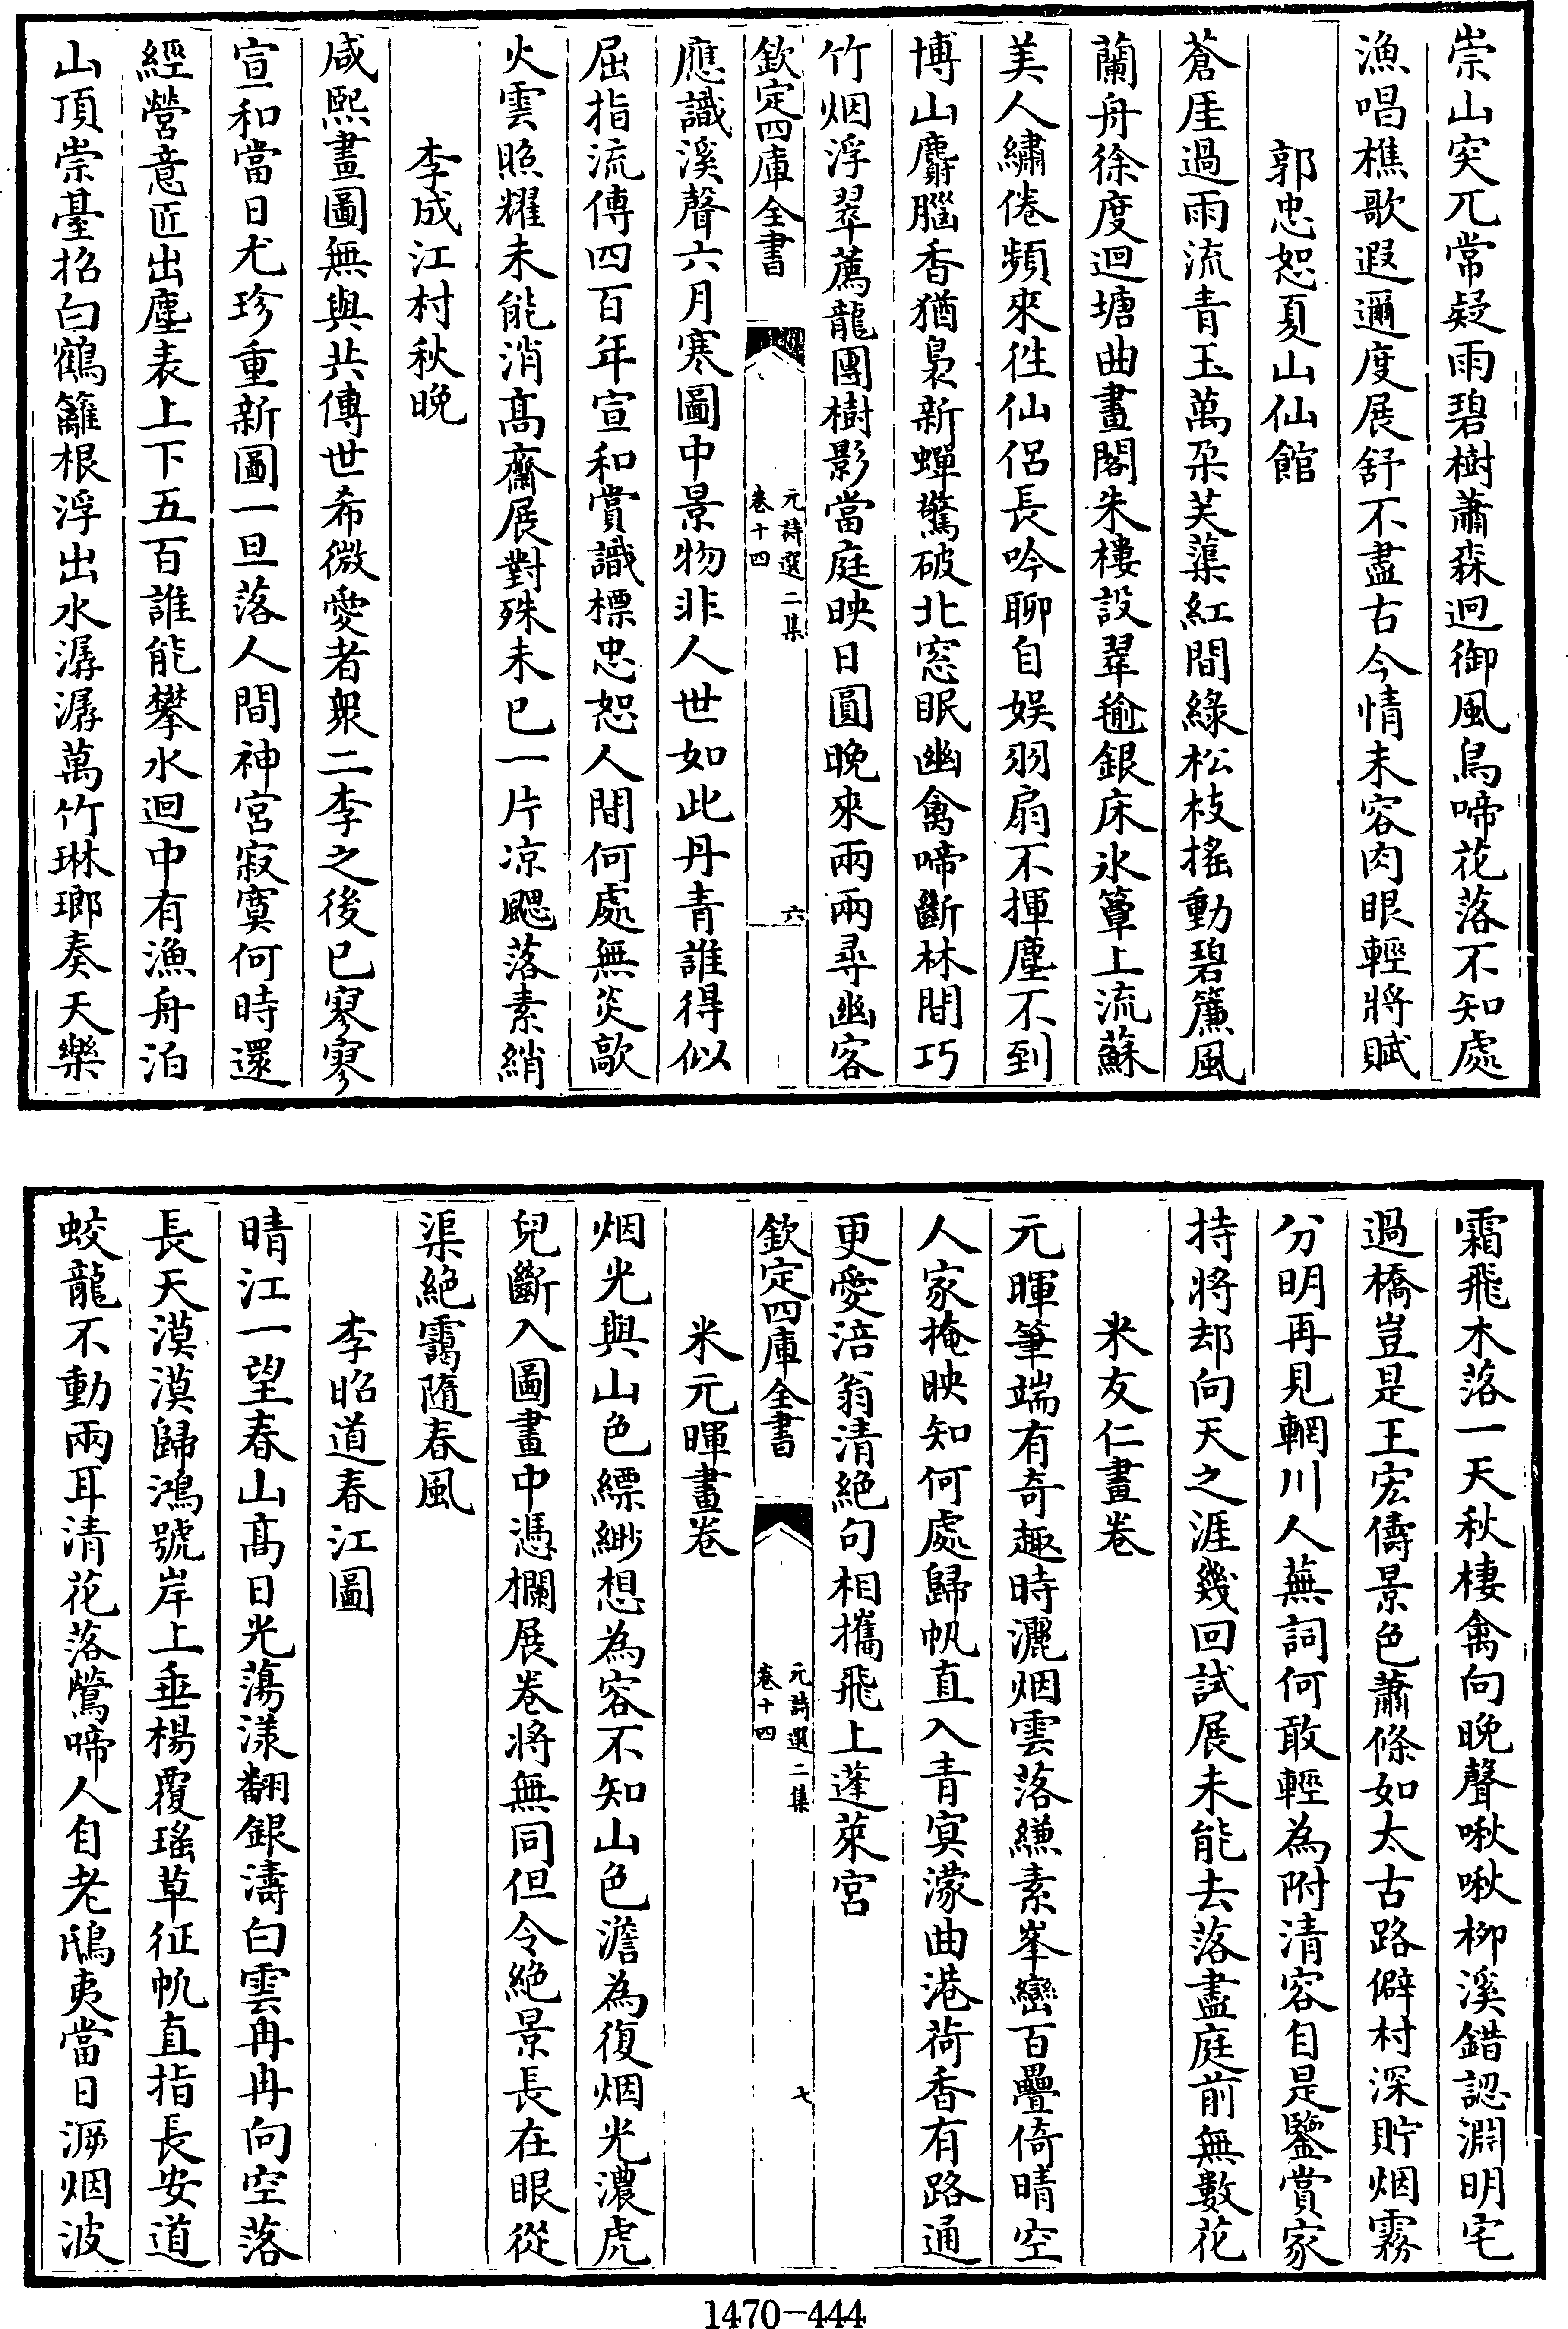 崇山突兀常疑雨碧樹蕭森迥御風鳥啼花落不知處
漁唱樵歌遐邇度展舒不盡古今情未容肉眼輕將賦
郭忠恕夏山仙館
蒼厓過雨流青玉萬朶芙蕖紅間綠松枝搖動碧簾風
蘭舟徐度迴塘曲畫閣朱樓設翠𢅥銀床氷簟上流蘇
美人繡倦頻來往仙侶長吟聊自娱羽扇不揮塵不到
博山麝腦香猶裊新蟬驚破北窓眠幽禽啼斷林間巧
竹烟浮翠薦龍團樹影當庭映日圓晚來兩兩尋幽客
欽定四庫全書
元詩選二集
卷十四
六
應識溪聲六月寒圖中景物非人世如此丹青誰得似
屈指流傳四百年宣和賞識標忠恕人間何處無炎歊
火雲照耀未能消髙齋展對殊未已一片凉颸落素綃
李成江村秋晚
咸熙畫圖無與共傳世希微愛者衆二李之後已寥寥
宣和當日尤珍重新圖一旦落人間神宮寂寞何時還
經營意匠出塵表上下五百誰能攀水迴中有漁舟泊
山頂崇臺招白鶴籬根浮出水潺潺萬竹琳瑯奏天樂
霜飛木落一天秋棲禽向晚聲啾啾栁溪錯認淵明宅
過橋豈是王宏儔景色蕭條如太古路僻村深貯烟霧
分明再見輞川人蕪詞何敢輕為附清容自是鑒賞家
持將却向天之涯幾回試展未能去落盡庭前無數花
米友仁畫卷
元暉筆端有奇趣時灑烟雲落縑素峯巒百疊倚晴空
人家掩映知何處歸帆直入青冥濛曲港荷香有路通
更愛涪翁清絶句相攜飛上蓬萊宮
欽定四庫全書
元詩選二集
卷十四
七
米元暉畫卷
烟光與山色縹緲想為容不知山色澹為復烟光濃虎
兒斷入圖畫中憑欄展卷将無同但令絶景長在眼從
渠絶靄隨春風
李昭道春江圖
晴江一望春山髙日光蕩漾翻銀濤白雲冉冉向空落
長天漠漠歸鴻號岸上垂楊覆瑤草征帆直指長安道
蛟龍不動兩耳清花落鶯啼人自老鴟夷當日泝烟波
1470-444